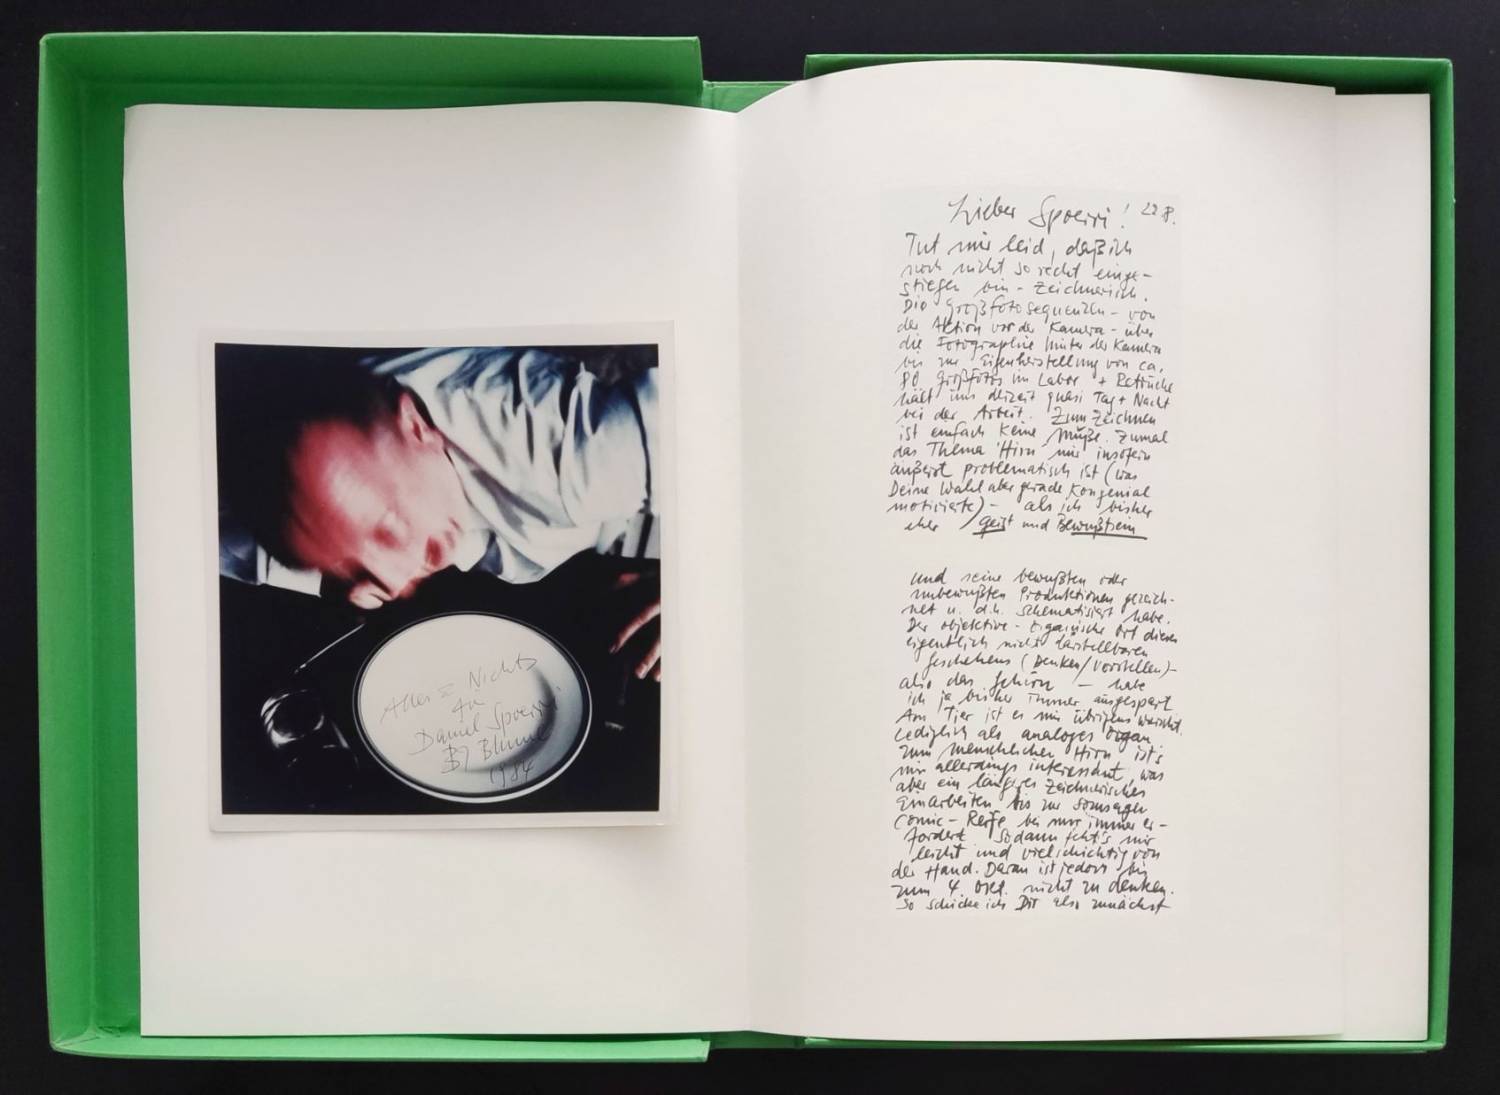 Alles u Nichts
für
Daniel Spoerri
BJ Blume
1984
Lieber Spoerri! 22.8.
Tut mir leid, daß ich
noch nicht so recht einge-
stiegen bin – zeichnerisch.
Die Großfotosequenzen – von
der Aktion vor der Kamera – über
die Fotographie hinter der Kamera
bis zur Eigenherstellung von ca.
80 Großfotos im Labor + Retusche
hält uns derzeit quasi Tag + Nacht
bei der Arbeit. Zum Zeichnen
ist einfach keine Muße. Zumal
das Thema 'Hirn mir insofern
äußerst problematisch ist (was
Deine Wahl aber gerade kongenial
motivierte) – als ich bisher
eher Geist und Bewußtsein
und seine bewußten oder
unbewußten Produktionen gezeich-
net u. d.h. schematisiert habe.
Der objektive – organische Ort dieses
eigentlich nicht darstellbaren
Geschehens (Denken/Vorstellen) –
also das Gehirn – habe
ich ja bisher immer ausgespart
Am Tier ist es mir übrigens
lediglich als analoges Organ
zum menschlichen Hirn ist's
mir allerdings interessant, was
aber ein längeres zeichnerisches
Einarbeiten bis zur sozusagen
Comic – Reife bei mir immer er-
fordert. Sodann geht's mir
leicht und vielschichtig von
der Hand. Daran ist jedoch bis
zum 4. Okt. nicht zu denken.
So schicke ich Dir also zunächst